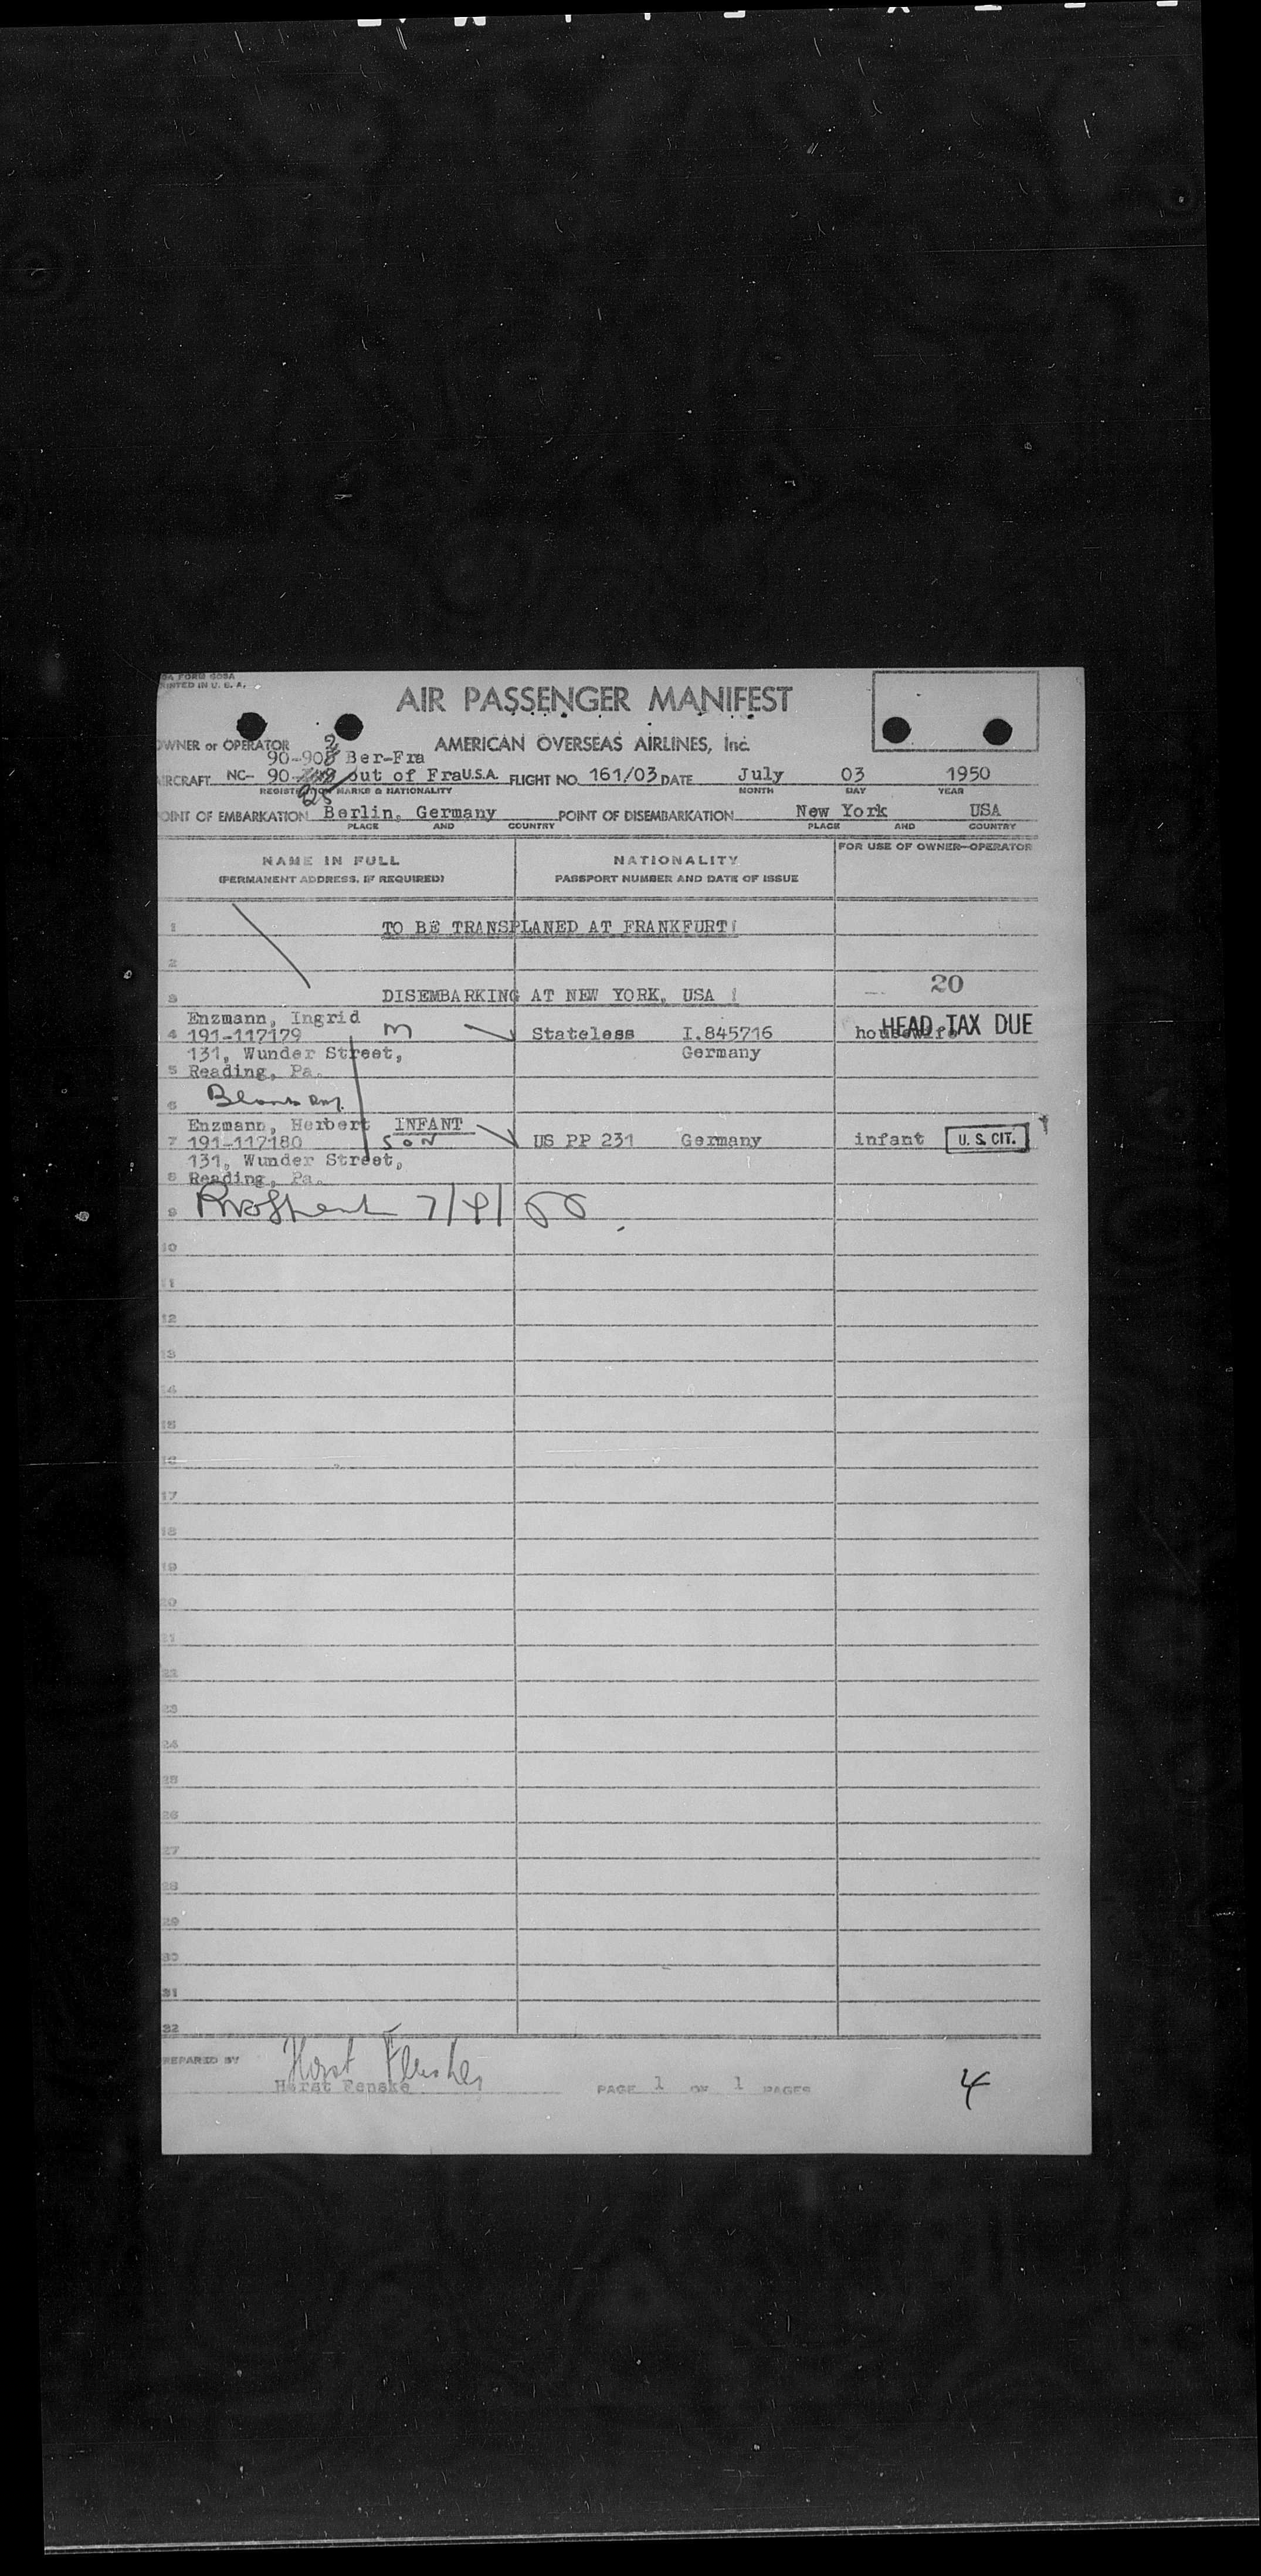 FORM 609A
PRINTED IN U. S. A.
AIR PASSENGER MANIFEST
OWNER or OPERATOR AMERICAN OVERSEAS AIRLINES, Inc.
90-90 Ber-Fra
AIRCRAFT NC- 90- out of Fra U.S.A. FLIGHT NO. 161/03 DATE July 03 1950
REGISTRATION MARKS & NATIONALITY MONTH DAY YEAR
25
POINT OF EMBARKATION Berlin, Germany POINT OF DISEMBARKATION New York USA
PLACE AND COUNTRY PLACE AND COUNTRY
NAME IN FULL NATIONALITY FOR USE OF OWNER-OPERATOR
(PERMANENT ADDRESS, IF REQUIRED) PASSPORT NUMBER AND DATE OF ISSUE
1 TO BE TRANSPLANED AT FRANKFURT!
2
3 DISEMBARKING AT NEW YORK, USA ! 20
Enzmann, Ingrid
4 191-117179 m Stateless I.845716 housewife HEAD TAX DUE
131, Wunder Street, Germany
5 Reading, Pa.
6
Enzmann, Herbert INFANT
7 191-117180 SON US PP 231 Germany infant U. S. CIT.
131, Wunder Street,
8 Reading, Pa.
9 7/4/
10
11
12
13
14
15
16
17
18
19
20
21
22
23
24
25
26
27
28
29
30
31
32
PREPARED BY Horst Fenske
Horst Fenske PAGE 1 OF 1 PAGES 4